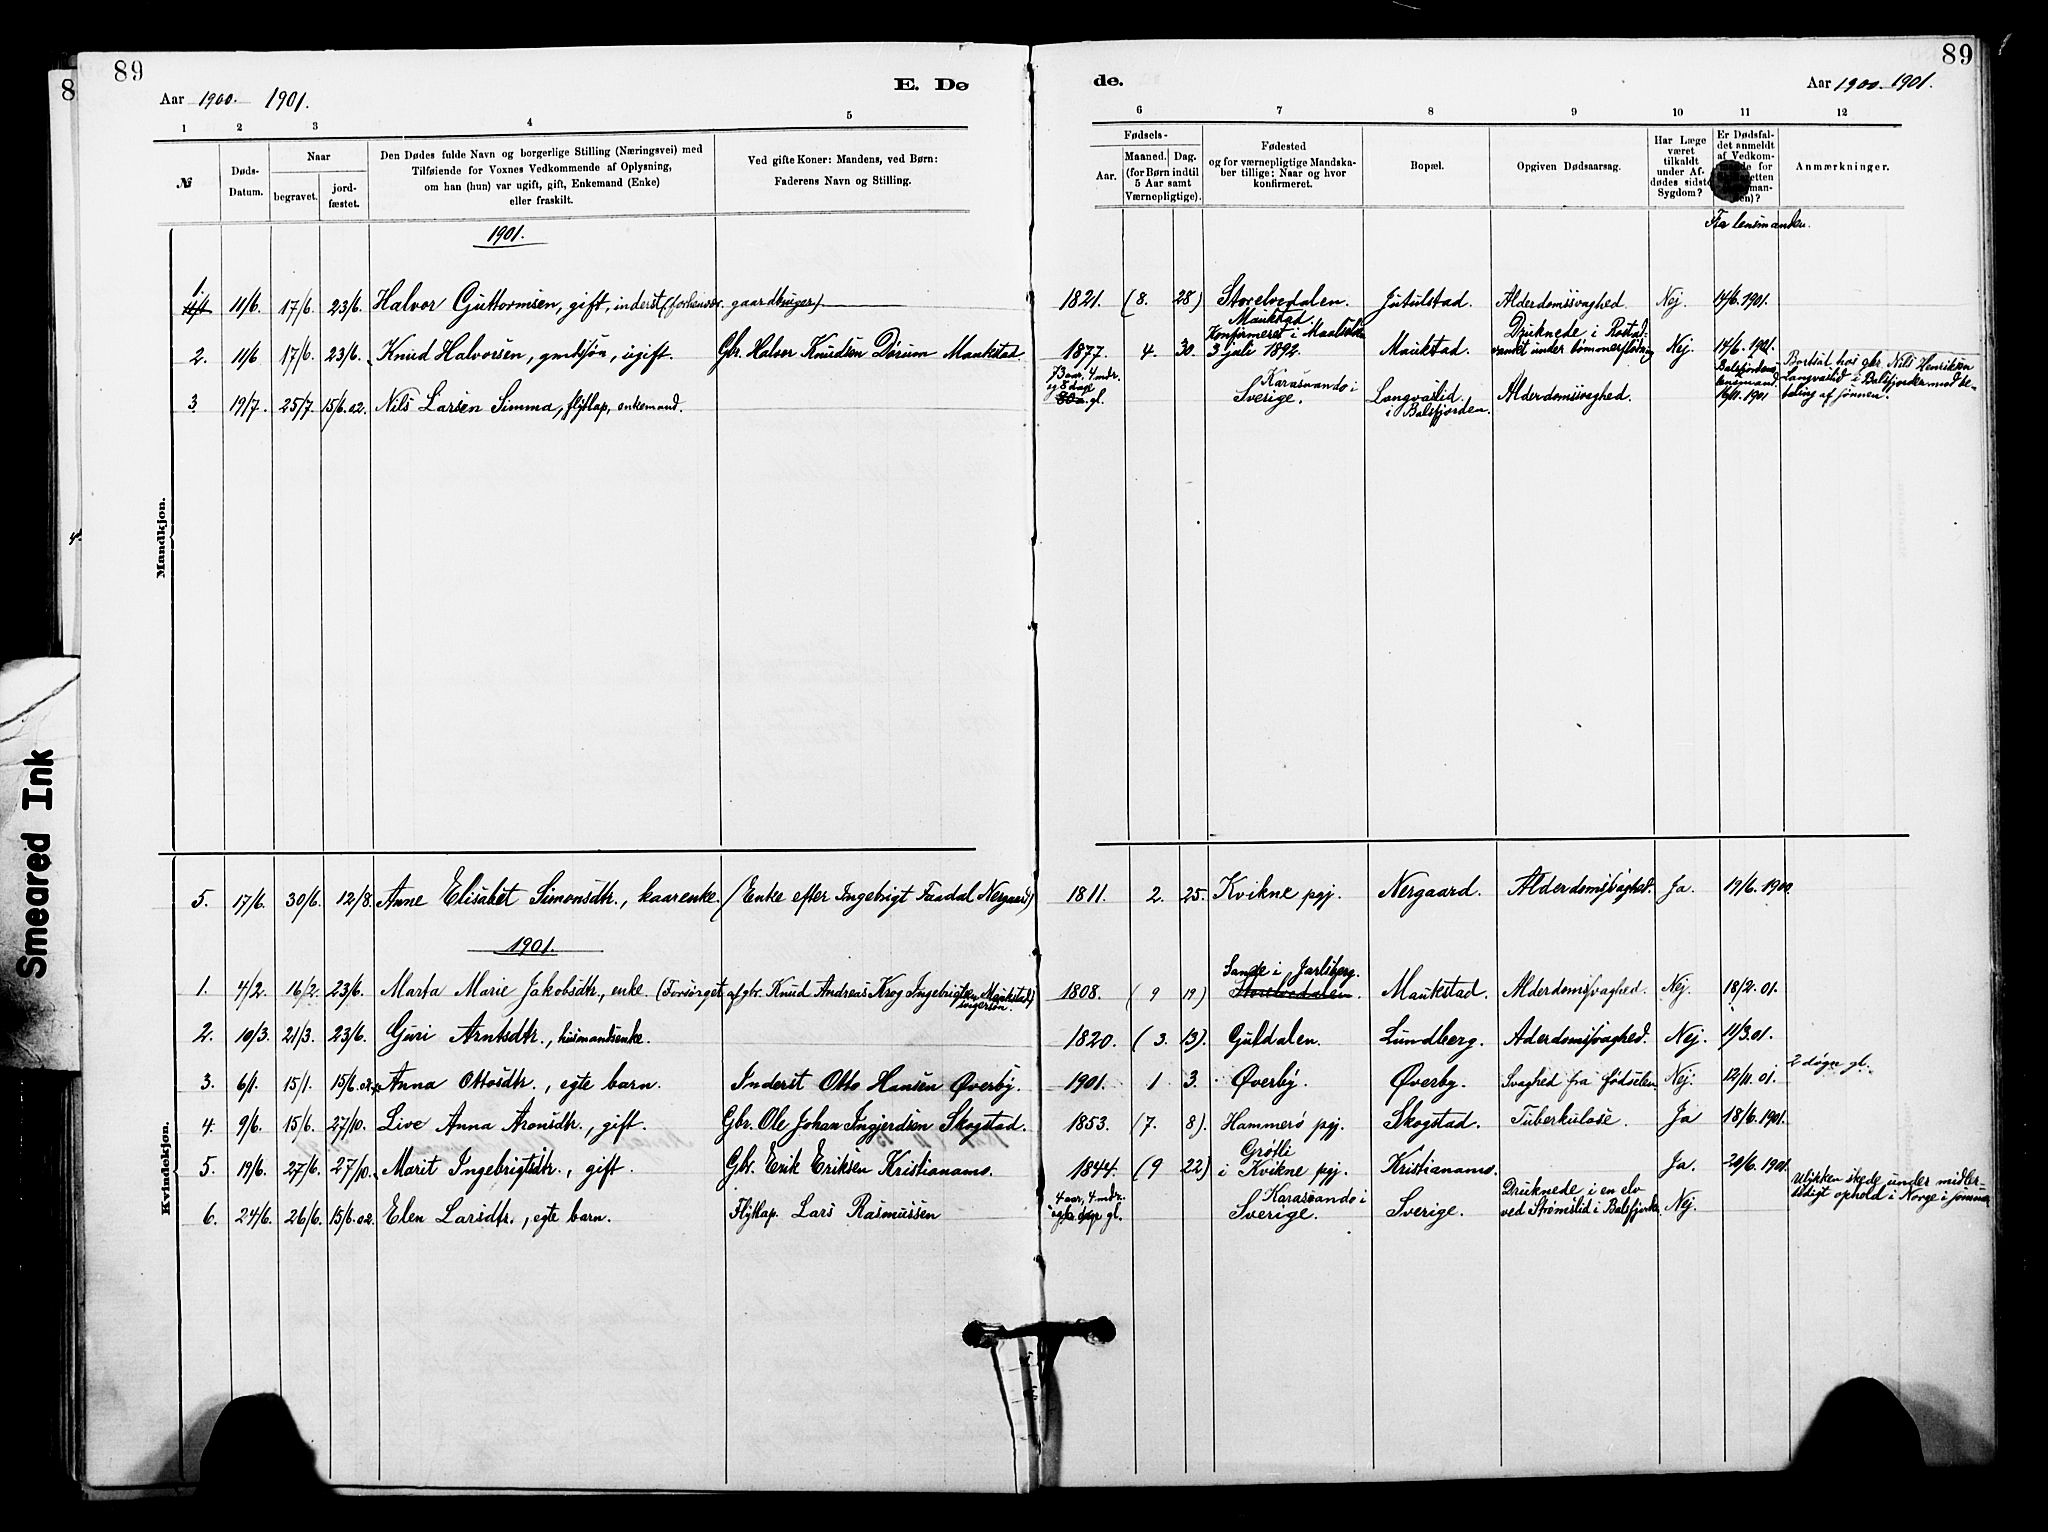 89
Aar 1900. 1901.
E. Dø
1 2 3 4 5
№
Døds-
Datum.
Naar
begravet.
jord-
fæstet.
Den Dødes fulde Navn og borgerlige Stilling (Næringsvei) med
Tilføiende for Voxnes Vedkommende af Oplysning,
om han (hun) var ugift, gift, Enkemand (Enke)
eller fraskilt.
Ved gifte Koner: Mandens, ved Børn:
Faderens Navn og Stilling.
Mandkjøn.
1901.
1. 11/6. 17/6. 23/6. Halvor Guttormsen, gift, inderst (forhenv. gaardbruger)
2. 11/6 17/6. 23/6. Knud Halvorsen, gmdsøn, ugift. Gbr. Halvor Knudsen Dørum Maukstad.
3 19/7. 25/7. 15/6.02. Nils Larsen Simma, flytlap, enkemand.
Kvindekjøn.
5. 17/6. 30/6. 12/8. Anne Elisabet Simonsdtr., kaarenke. (Enke efter Ingebrigt Faadal Nergaard)
1901.
1. 4/2. 16/2. 23/6. Marta Marie Jakobsdtr., enke. (Forsørget af gbr. Knud Andreas Krog Ingebrigtsen Maukstad)
2. 10/3. 21/3. 23/6. Guri Arntsdtr., husmandsenke.
3. 6/1. 15/1. 15/6.02. Anna Ottosdtr., egte barn. Inderst Otto Hansen Øverby.
4. 9/6. 15/6. 27/10. Live Anna Aronsdtr., gift. Gbr. Ole Johan Ingjerdsen Skogstad.
5. 19/6. 27/6. 27/10. Marit Ingebrigtsdtr., gift. Gbr. Erik Eriksen Kristianamo.
6. 24/6. 26/6. 15/6.02. Elen Larsdtr., egte barn. Flytlap. Lars Rasmussen
89
de.
Aar 1900. 1901.
6 7 8 9 10 11 12
Fødsels-
Aar.
Maaned. Dag.
(for Børn indtil
5 Aar samt
Værnepligtige).
Fødested
og for værnepligtige Mandska-
ber tillige: Naar og hvor
konfirmeret.
Bopæl.
Opgiven Dødsaarsag.
Har Læge
været
tilkaldt
under Af-
dødes sidste
Sygdom?
Er Dødsfal-
det anmeldt
af Vedkom-
Anmærkninger.
Fra lensmanden.
1821. (8. 28) Storelvedalen. Jutulstad. Alderdomssvaghed Nej. 14/6.1901.
Maukstad.
Konfirmeret i Maalselv
Druknede i Rostad-
1877. 4. 30. 3 juli 1892. Maukstad. vandt under tømmerflødning Nej. 14/6.1901.
73 aar, 4 mdr.
og 8 dage
80 a. gl.
Karasuando i
Sverige.
Langvaslid
i Balsfjorden.
Alderdomssvaghed.
Balsfjordens
lensmand.
16/11.1901
Bortsat hos gbr. Nils Henriksen
Langvaslid i Balsfjorden mod be-
taling af sønnen.
1811. 2. 25. Kvikne pgj. Nergaard. Alderdomssvaghed. Ja. 19/6.1900
Sande i Jarlsberg.
1808. (9 19) Storelvedalen. Maukstad. Alderdomssvaghed. Nej. 18/2.01.
1820. (3. 13). Guldalen. Lundberg. Aderdomssvaghed. Nej. 11/3.01.
2 døgn gl.
1901. 1 3. Øverby. Øverby. Svaghed fra fødselen. Nej. 12/11.01.
1853. (7. 8). Hammerø pgj. Skogstad. Tuberkulose. Ja 18/6.1901.
Grøtli
1844. (9 22) i Kvikne pgj. Kristianamo. Ja. 20/6.1901.
4 aar, 4 mdr.
Karasuando i
Sverige.
Sverige.
Druknede i en elv
ved Strømslid i Balsfjorden.
Nej.
Ulykken skede under midler-
tidigt ophold i Norge i sommer
Smeared Ink